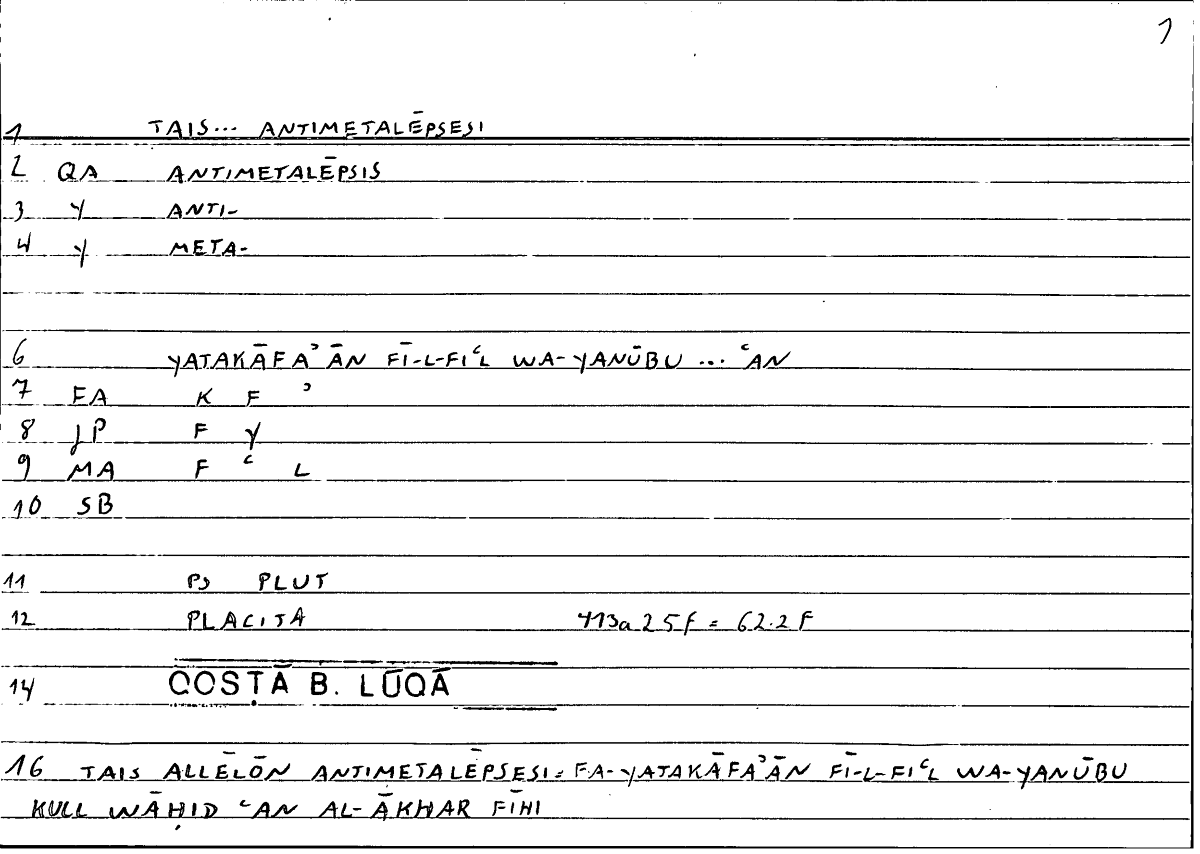 1
1 TAIS... ANTIMETALĒPSESI
2 QA ANTIMETALĒPSIS
3 Y ANTI-
4 Y META-
6 YATAKĀFAʾĀN FĪ-L-FIʿL WA-YANŪBU ... ʿAN
7 FA K F ʾ
8 JP F Y
9 MA F ʿ L
10 SB
11 PS PLUT
12 PLACITA 413a 25f = 62.2 F
14 QOSṬĀ B. LŪQĀ
16 TAIS ALLĒLŌN ANTIMETALĒPSESI = FA-YATAKĀFAʾĀN FĪ-L-FIʿL WA-YANŪBU
KULL WĀḤID ʿAN AL-ĀKHAR FĪHI